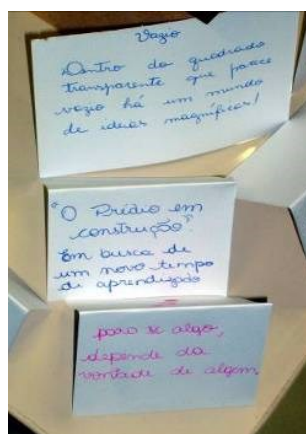 Vazio
Dentro do quadrado
transparente que parece
vazio há um mundo
de ideias magníficas!
"O Prédio em
construção".
Em busca de
um novo tempo
de aprendizado
para se algo,
depende da
vontade de algem,